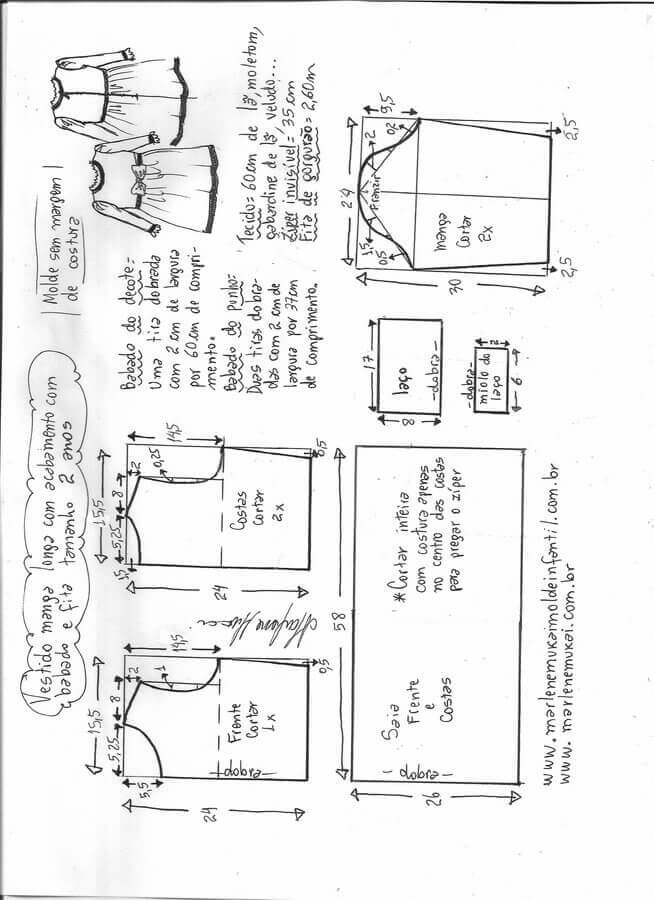 Vestido manga longa com acabamento com
babado e fita tamanho 2 anos
Molde sem margem
de costura
Babado do decote=
Uma tira dobrada
com 2 cm de largura
por 60 cm de compri-
mento.
Babado do punho:
Duas tiras dobra-
das com 2 cm de
largura por 37cm
de comprimento.
Tecido= 60cm de lã, moletom,
gabardine de lã, veludo...
Zíper invisível= 35 cm
Fita de gorgurão= 2,60m
15,5
5,25
8
2
14,5
1
5,5
Frente
Cortar
1x
dobra
0,5
24
15,5
5,25
8
2
14,5
0,25
Costas
Cortar
2x
0,5
24
9,5
0,2
2
Franzir
1,5
0,5
29
manga
Cortar
2x
2,5
2,5
30
17
laço
-dobra-
8
-dobra-
miolo do
laço
6
58
Saia
Frente
e
Costas
dobra
26
*Cortar inteira
com costura apenas
no centro das costas
para pregar o zíper
www.marlenemukaimoldeinfantil.com.br
www.marlenemukai.com.br